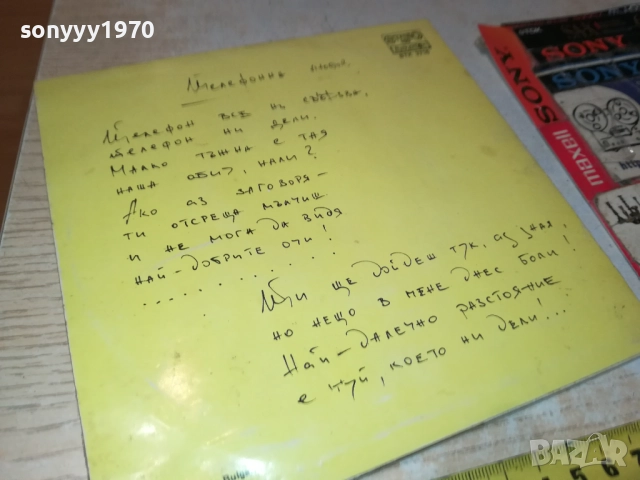 sonyyy1970
Телефонна любов
Телефон все ни свързва,
телефон ни дели.
Малко тъжна е тая
наша обич, нали?
Ако аз заговоря –
ти отсреща мълчиш
и не мога да видя
най-добрите очи!
. . . . . . . . . . .
Ти ще дойдеш тук, аз зная,
но нещо в мене днес боли!
Най-далечно разстояние
е туй, което ни дели!...
SONY
SONY
SONY
maxell
BAZAR